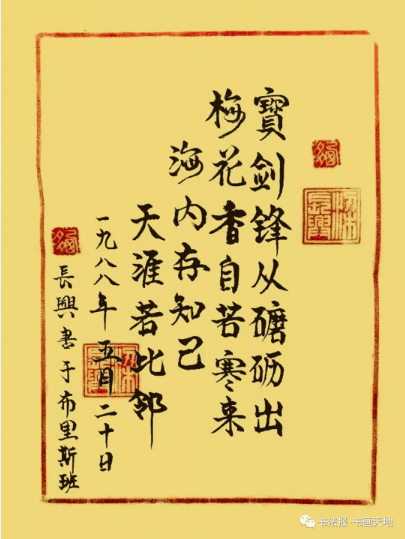 寶劍鋒从磨砺出
梅花香自若寒来
海内存知己
天涯若比邻
一九八八年五月二十日
長興書于布里斯班
书法报·书画天地